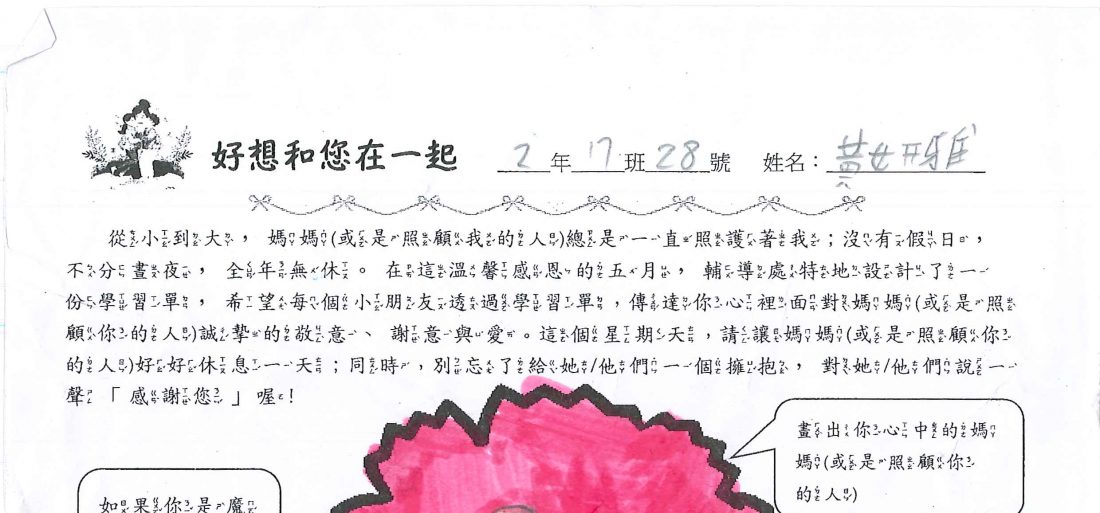 好想和您在一起 2年17班28號 姓名：黃女研雅
從小到大，媽媽(或是照顧我的人)總是一直照護著我；沒有假日，
不分晝夜，全年無休。在這溫馨感恩的五月，輔導處特地設計了一
份學習單，希望每個小朋友透過學習單，傳達你心裡面對媽媽(或是照
顧你的人)誠摯的敬意、謝意與愛。這個星期天，請讓媽媽(或是照顧你
的人)好好休息一天；同時，別忘了給她/他們一個擁抱，對她/他們說一
聲「感謝您」喔！
畫出你心中的媽
媽(或是照顧你
的人)
如果你是魔